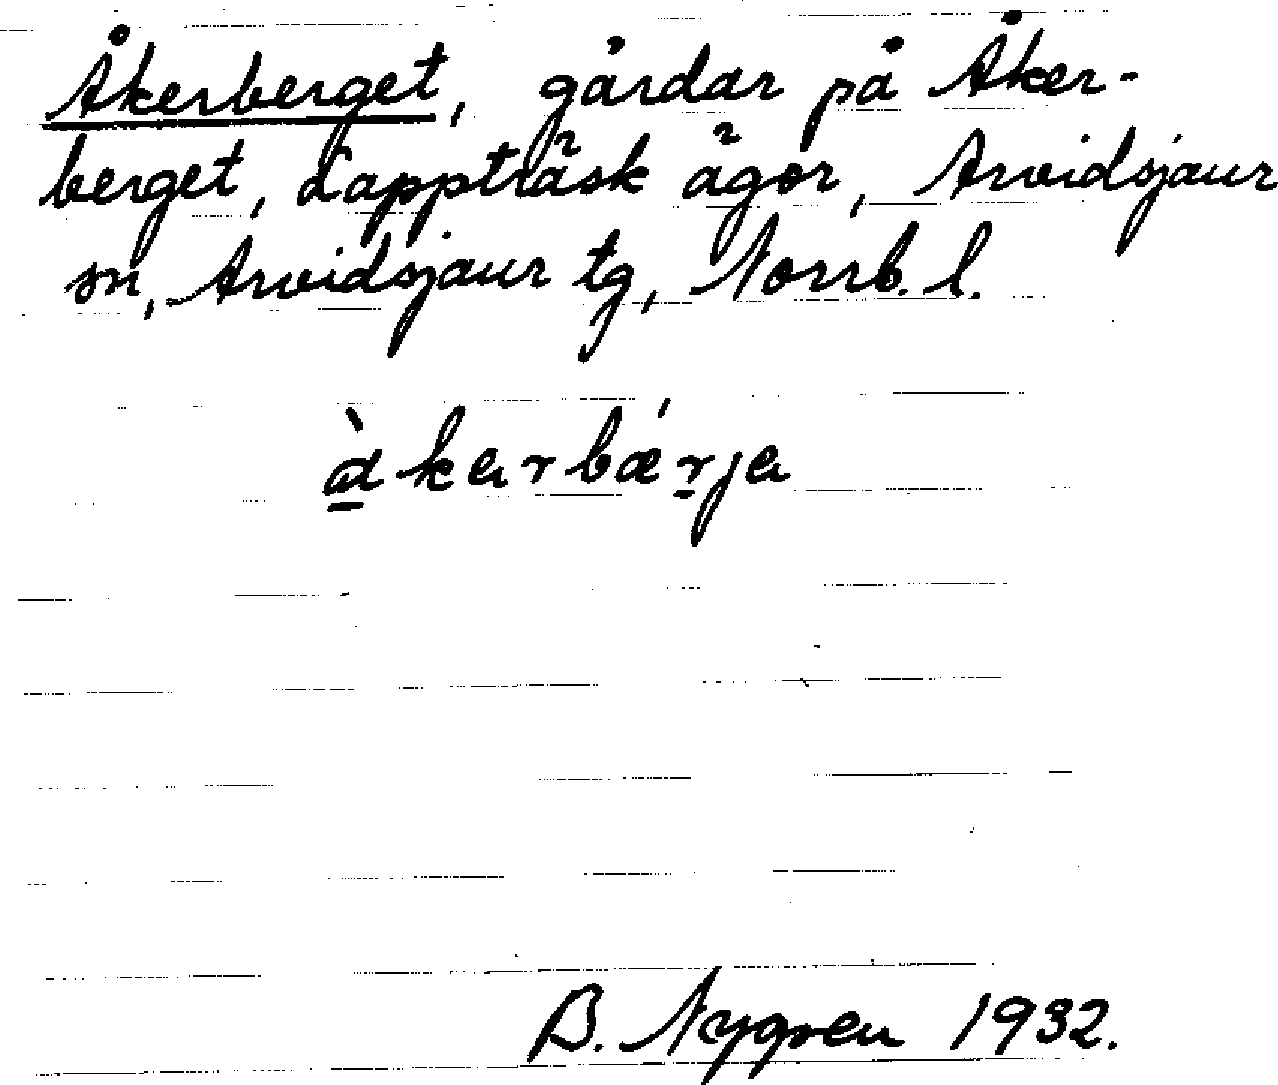 Åkerberget, gårdar på Åker-
berget, Lappträsk ägor, Arvidsjaur
sn, Arvidsjaur tg, Norrb. l.
àkerbǽrja
B. Nygren 1932.